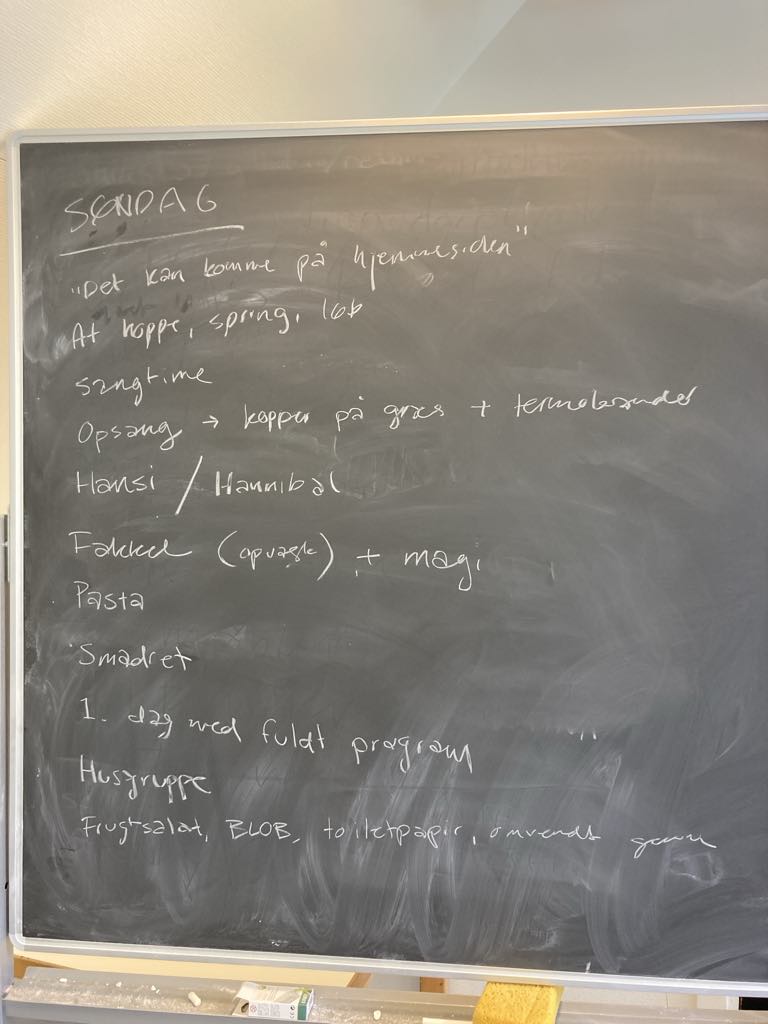 SØNDAG
"Det kan komme på hjemmesiden"
At hoppe, spring, løb
sangtime
Opsang → kopper på græs +
Hansi / Hannibal
Fakkel (opvask) + magi
Pasta
Smadret
1. dag med fuldt program
Husgruppe
Frugtsalat, BLOB, toiletpapir, omvendt